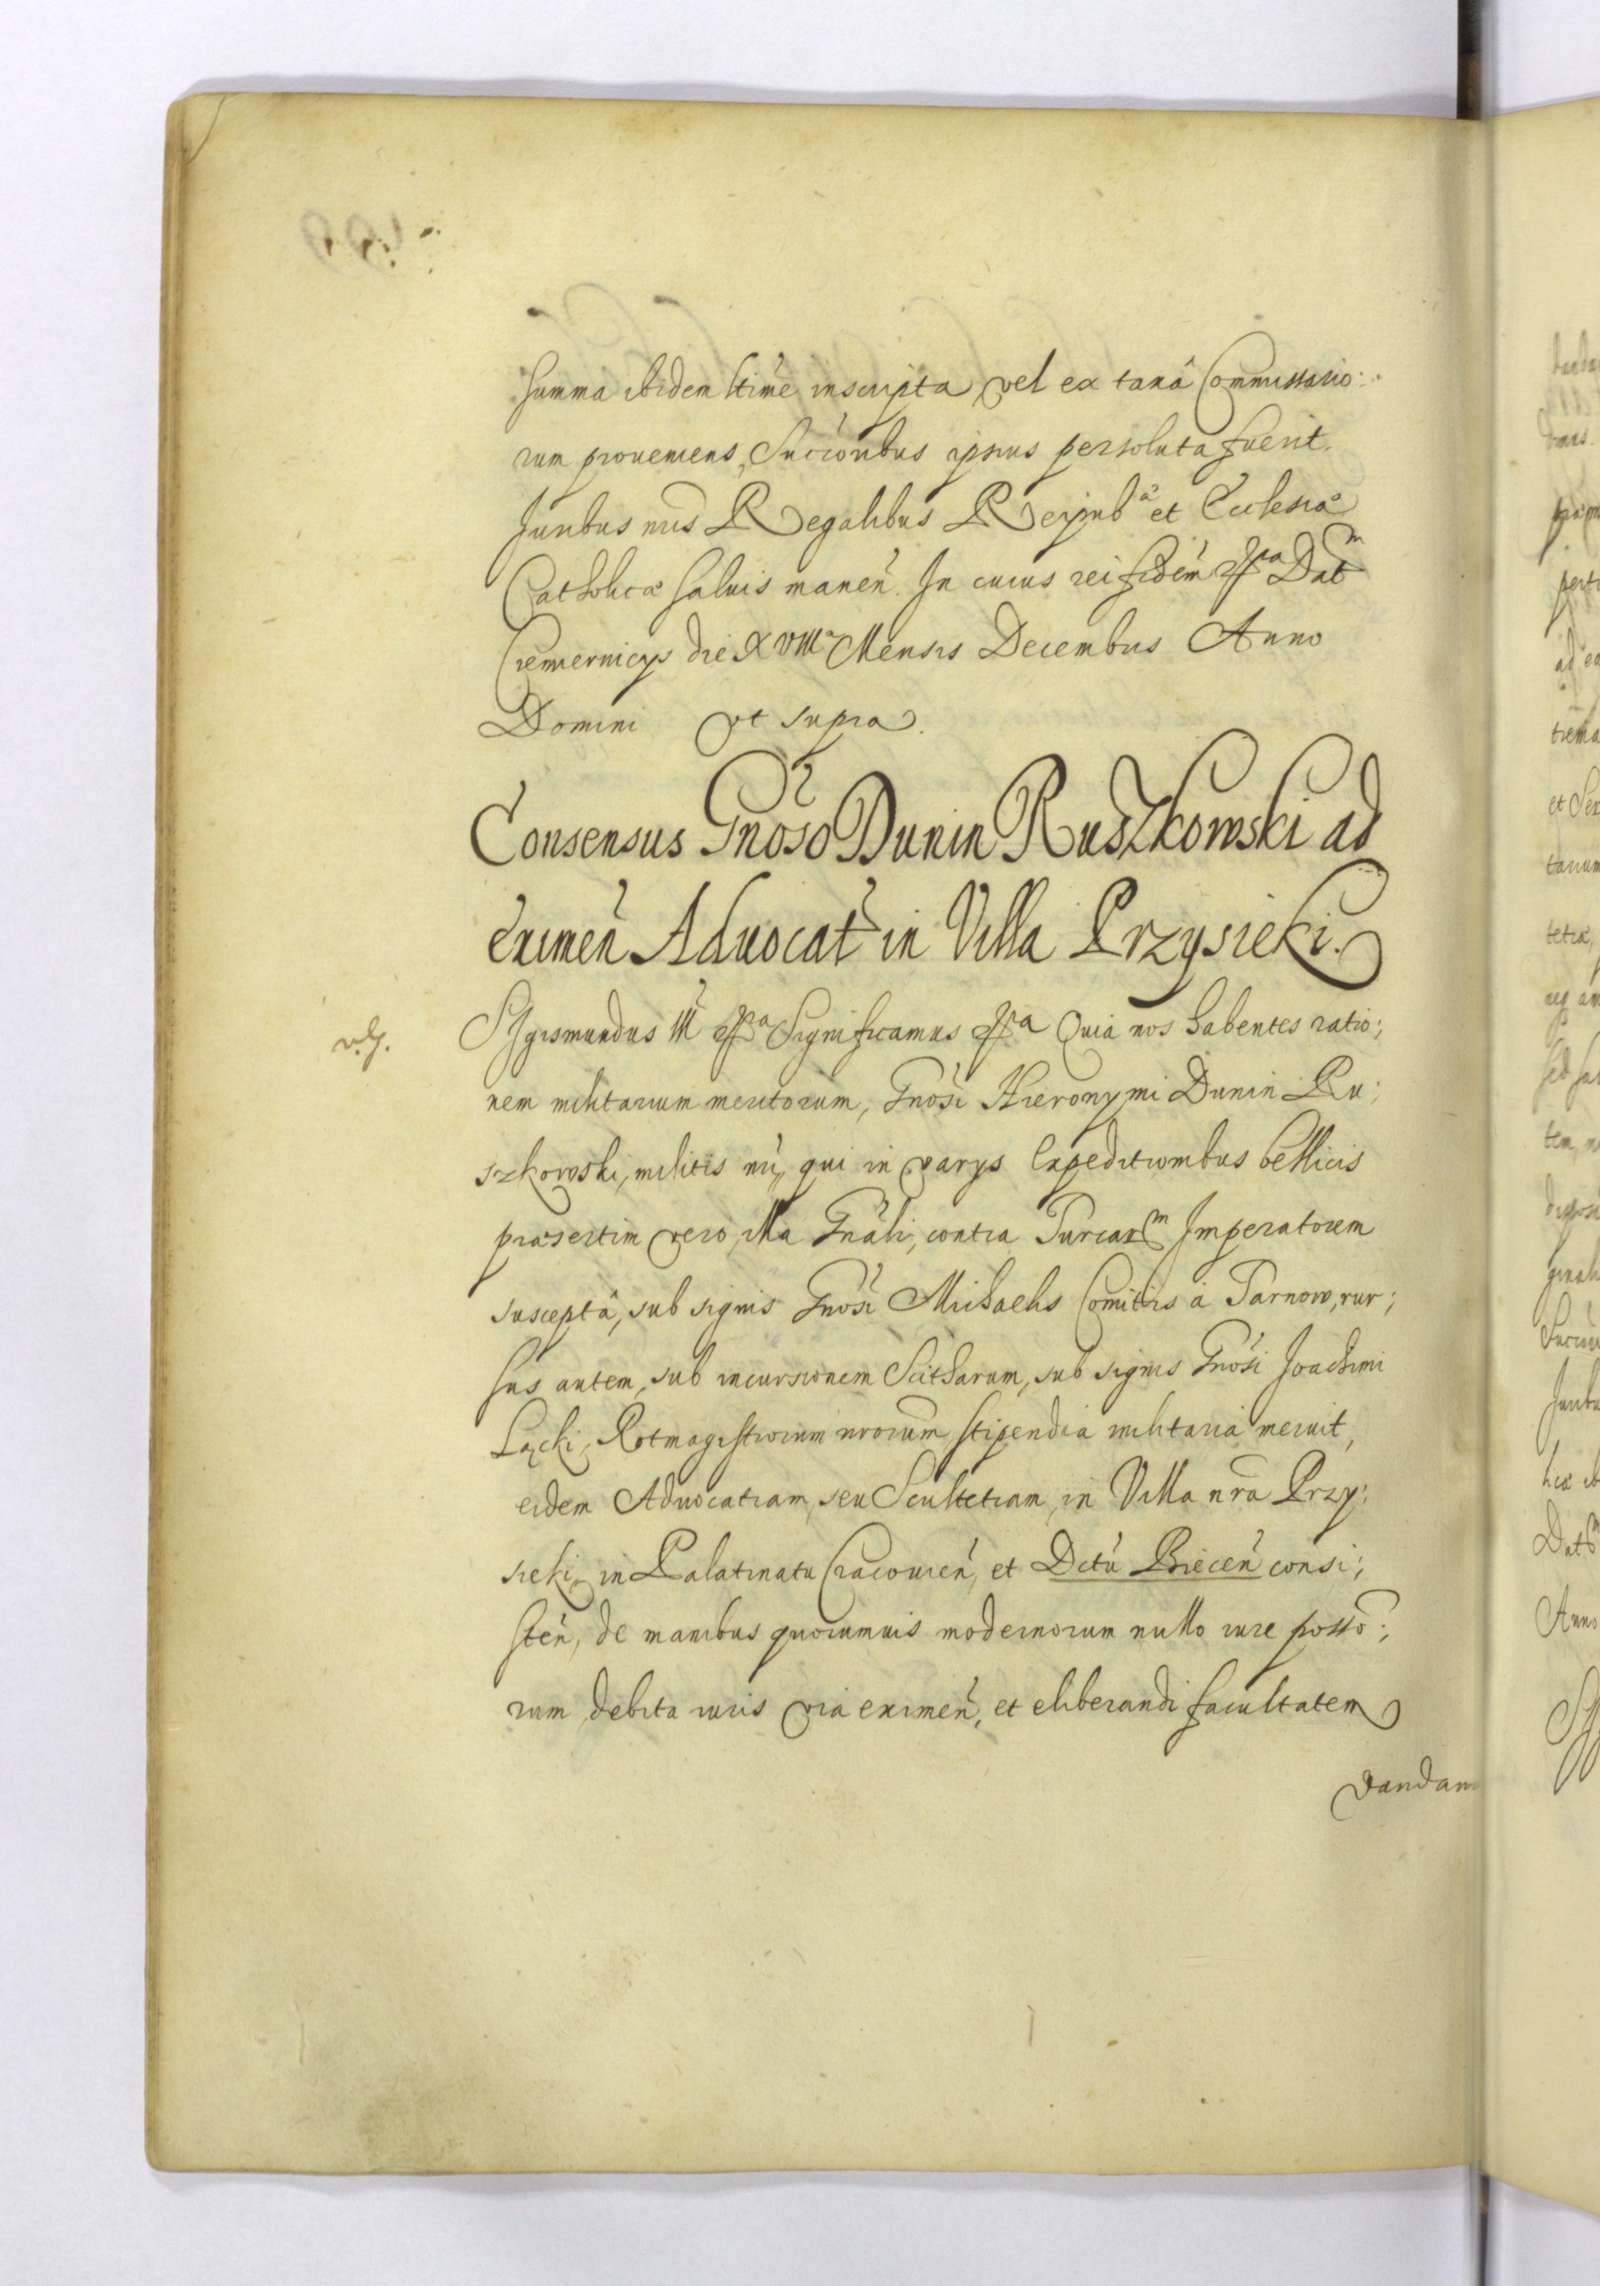 summa ibidem ltime inscripta vel ex taxâ Commissario:
rum proueniens, Succoribus ipsius persoluta fuerit.
Juribus nris Regalibus Reipub^a et Ecclesiæ
Catholicæ saluis manen. In cuius rei fidem Dat^m
die XVIII^a Mensis Decembris Anno
Domini vt supra.
Consensus Gnoso Dunin Ruszkowski ad
eximen Aduocat in Villa Przysieki.
v. g.
Sygismundus III Significamus Quia nos habentes ratio;
nem militarium meritorum, Gnosi Hieronymi Dunin Ru;
szkowski, militis nri, qui in varys Expeditionibus bellicis
præsertim vero, illa Gnali, contra Turcar^m Imperatorem
susceptâ, sub signis Gnosi Michaelis Comitis à Tarnow, rur;
sus autem, sub incursionem Scitharum, sub signis Gnosi Joachimi
Lącki, Rotmagistrorum nrorum stipendia militaria meruit,
eidem Aduocatiam, seu Scultetiam, in Villa nra Przy;
sieki, in Palatinatu Cracouien, et Dctu Biecen consi;
sten, de manibus quorumuis modernorum nullo iure posso:;
rum, debita iuris via eximen, et eliberandi facultatem
dandam